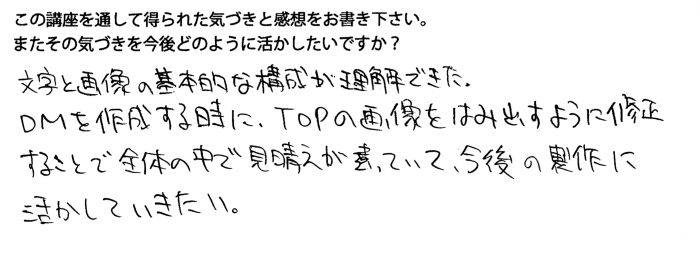 この講座を通して得られた気づきと感想をお書き下さい。
またその気づきを今後どのように活かしたいですか？
文字と画像の基本的な構成が理解できた。
DMを作成する時に、TOPの画像をはみ出すように修正
することで全体の中で見晴えが違っていて、今後の製作に
活かしていきたい。